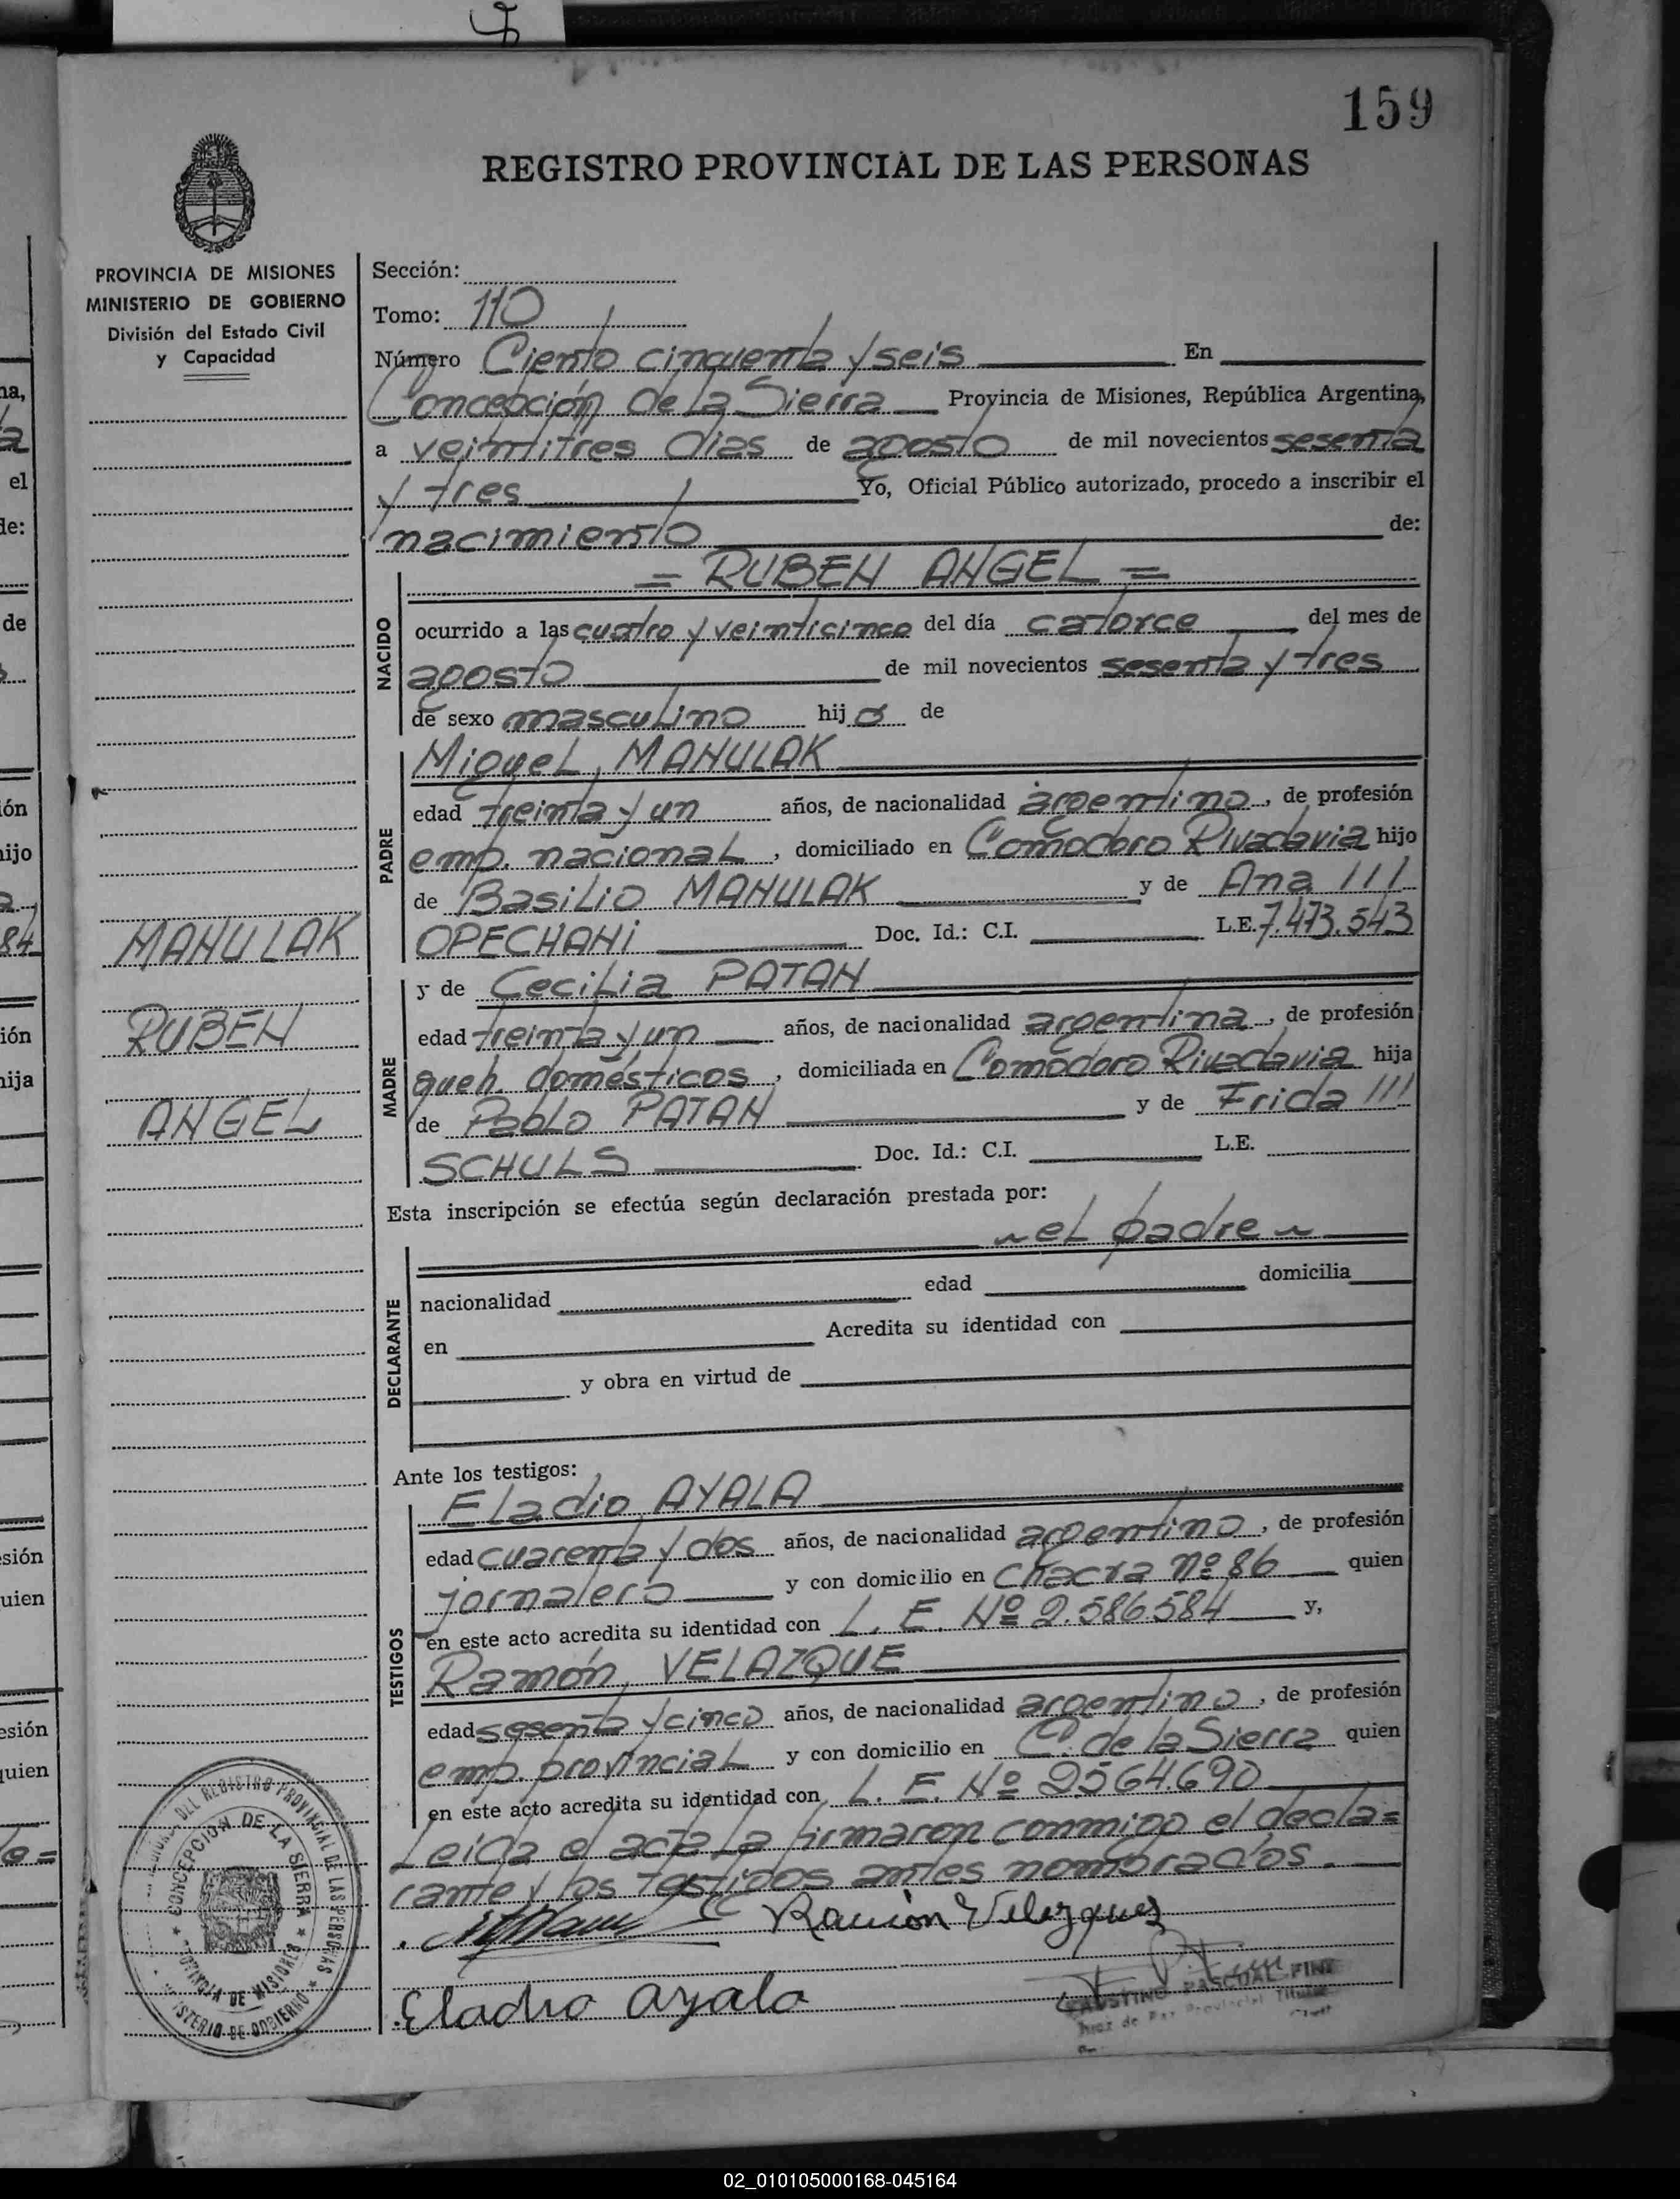 159
REGISTRO PROVINCIAL DE LAS PERSONAS
PROVINCIA DE MISIONES
MINISTERIO DE GOBIERNO
División del Estado Civil
y Capacidad
Sección:
Tomo: 110
Número Ciento cinquenta y seis En
Concepción de la Sierra Provincia de Misiones, República Argentina,
a veintitres dias de agosto de mil novecientos sesenta
y tres Yo, Oficial Público autorizado, procedo a inscribir el
nacimiento de:
= RUBEN ANGEL =
NACIDO
ocurrido a las cuatro y veinticinco del día catorce del mes de
agosto de mil novecientos sesenta y tres
de sexo masculino hijo de
PADRE
Miguel, MANULAK
edad treinta y un años, de nacionalidad argentino, de profesión
emp. nacional, domiciliado en Comodoro Rivadavia hijo
de Basilio MANULAK y de Ana ///
OPECHANi Doc. Id.: C.I. L.E. 7.473.543
MANULAK
RUBEN
ANGEL
MADRE
y de Cecilia PATAN
edad treinta y un años, de nacionalidad argentina, de profesión
queh. domésticos, domiciliada en Comodoro Rivadavia hija
de Pablo PATAN y de Frida ///
SCHULS Doc. Id.: C.I. L.E.
Esta inscripción se efectúa según declaración prestada por:
~ el padre ~
DECLARANTE
nacionalidad edad domicilia
en Acredita su identidad con
y obra en virtud de
Ante los testigos:
TESTIGOS
Eladio, AYALA
edad cuarenta y dos años, de nacionalidad argentino, de profesión
jornalero y con domicilio en chacra nº 86 quien
en este acto acredita su identidad con L. E. Nº 2.586584 y,
Ramón, VELAZQUE
edad sesenta y cinco años, de nacionalidad argentino, de profesión
emp. provincial y con domicilio en C. de la Sierra quien
en este acto acredita su identidad con L. E. Nº 2564.690
Leida el acta la firmaron conmigo el decla=
rante y los testigos antes nombrados.
Ramón Velazquez
Eladio Ayala
FAUSTINO PASCUAL FINT
Juez de Paz Provincial Titular
DEL REGISTRO PROVINCIAL DE LAS PERSONAS
CONCEPCION DE LA SIERRA
DE MISIONES
MINISTERIO DE GOBIERNO
02_010105000168-045164